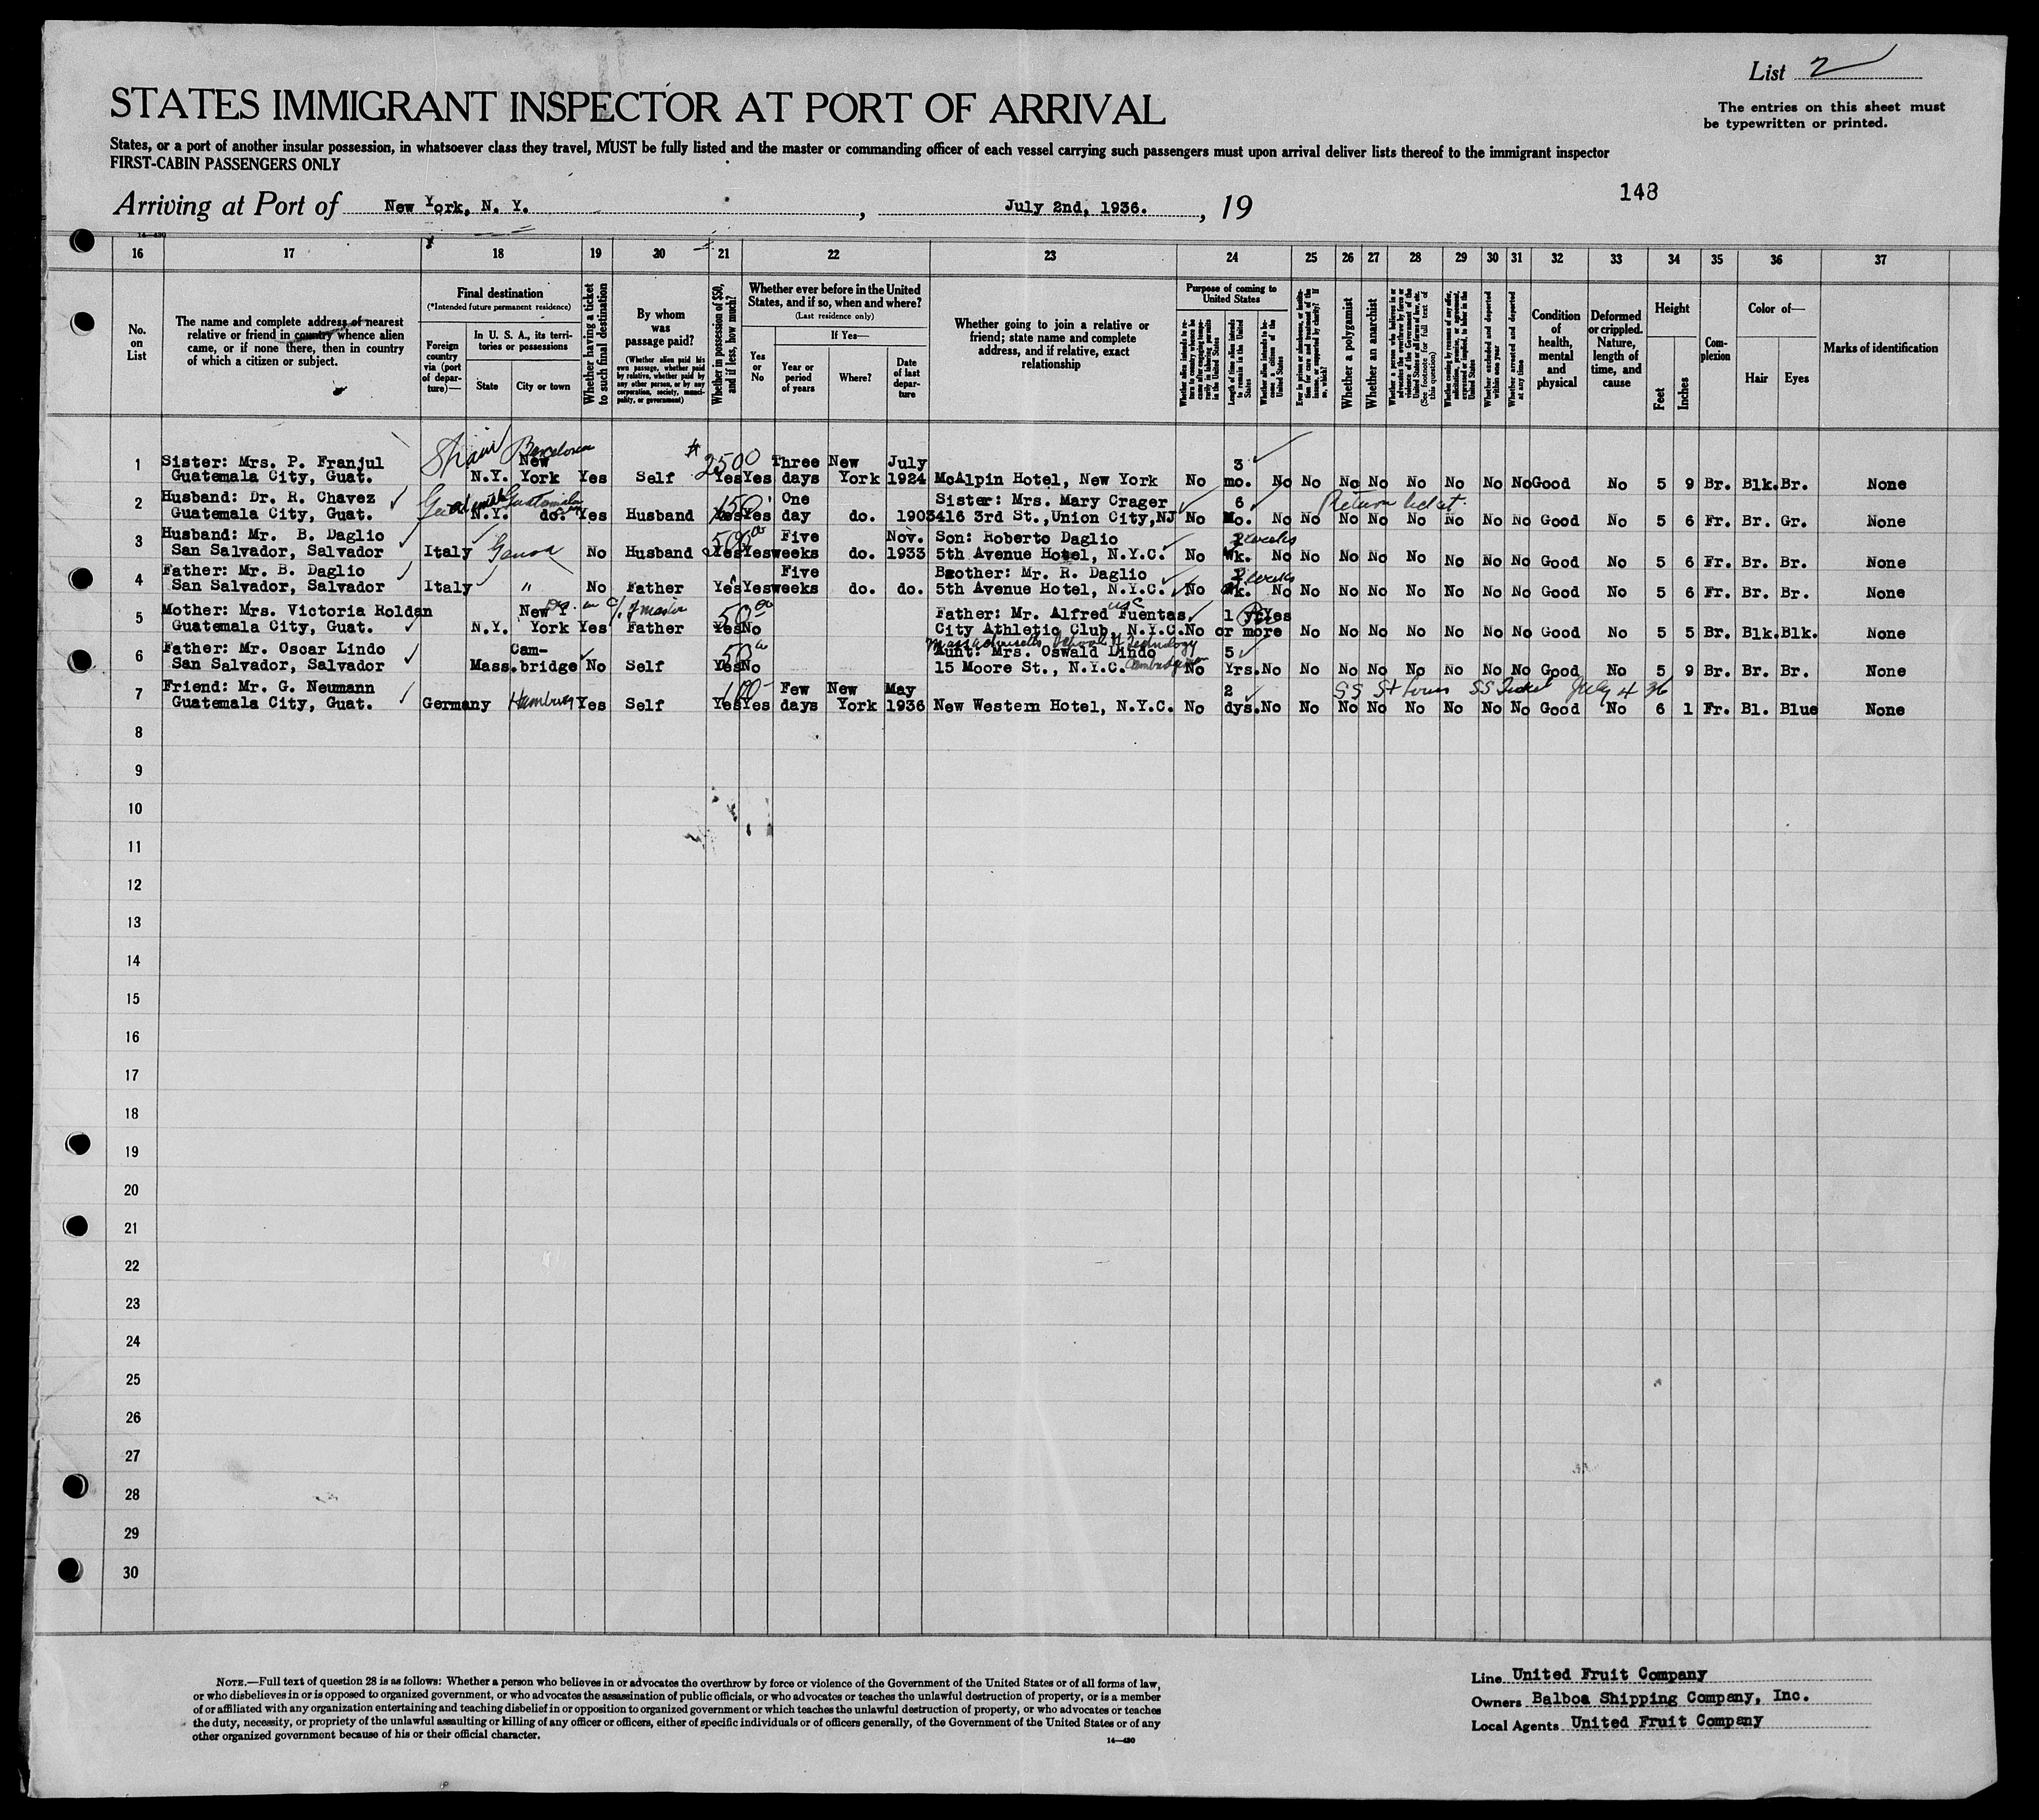 List 2
STATES IMMIGRANT INSPECTOR AT PORT OF ARRIVAL
The entries on this sheet must
be typewritten or printed.
States, or a port of another insular possession, in whatsoever class they travel, MUST be fully listed and the master or commanding officer of each vessel carrying such passengers must upon arrival deliver lists thereof to the immigrant inspector
FIRST-CABIN PASSENGERS ONLY
148
Arriving at Port of New York, N. Y. , July 2nd, 1936. , 19
14—430
16 17 18 19 20 21 22 23 24 25 26 27 28 29 30 31 32 33 34 35 36 37
No. on List
The name and complete address of nearest relative or friend in country whence alien came, or if none there, then in country of which a citizen or subject.
Final destination
(*Intended future permanent residence)
Foreign country via (port of departure)—
In U. S. A., its territories or possessions
State
City or town
Whether having a ticket to such final destination
By whom was passage paid?
(Whether alien paid his own passage, whether paid by relative, whether paid by any other person, or by any corporation, society, municipality, or government)
Whether in possession of $50, and if less, how much?
Whether ever before in the United States, and if so, when and where?
(Last residence only)
Yes or No
If Yes—
Year or period of years
Where?
Date of last departure
Whether going to join a relative or friend; state name and complete address, and if relative, exact relationship
Purpose of coming to United States
Whether alien intends to return to country whence he came after engaging temporarily in laboring pursuits in the United States
Length of time alien intends to remain in the United States
Whether alien intends to become a citizen of the United States
Ever in prison or almshouse, or institution for care and treatment of the insane, or supported by charity? If so, which?
Whether a polygamist
Whether an anarchist
Whether a person who believes in or advocates the overthrow by force or violence of the Government of the United States or all forms of law, etc. (See footnote for full text of this question)
Whether coming by reason of any offer, solicitation, promise, or agreement, expressed or implied, to labor in the United States
Whether excluded and deported within one year
Whether arrested and deported at any time
Condition of health, mental and physical
Deformed or crippled. Nature, length of time, and cause
Height
Feet
Inches
Complexion
Color of—
Hair
Eyes
Marks of identification
Spain Barcelona $2500
1 Sister: Mrs. P. Franjul New Three New July 3
Guatemala City, Guat. N.Y. York Yes Self Yes Yes days York 1924 McAlpin Hotel, New York No mo. No No No No No No No No Good No 5 9 Br. Blk. Br. None
2 Husband: Dr. R. Chavez Guatemala 150 One Sister: Mrs. Mary Crager 6 Return ticket
Guatemala City, Guat. N.Y. do. Yes Husband Yes Yes day do. 1903 416 3rd St., Union City, NJ No Mo. No No No No No No No No Good No 5 6 Fr. Br. Gr. None
3 Husband: Mr. B. Daglio 500 Five Nov. Son: Roberto Daglio 2 weeks
San Salvador, Salvador Italy Genoa No Husband Yes Yes weeks do. 1933 5th Avenue Hotel, N.Y.C. No Wk. No No No No No No No No Good No 5 6 Fr. Br. Br. None
4 Father: Mr. B. Daglio Five Brother: Mr. R. Daglio 2 weeks
San Salvador, Salvador Italy " No Father Yes Yes weeks do. do. 5th Avenue Hotel, N.Y.C. No wk. No No No No No No No No Good No 5 6 Fr. Br. Br. None
5 Mother: Mrs. Victoria Roldan New Y 50 Father: Mr. Alfred Fuentas USC 1 yr Yes
Guatemala City, Guat. N.Y. York Yes Father Yes No City Athletic Club, N.Y.C. No or more No No No No No No No Good No 5 5 Br. Blk. Blk. None
Massachusetts School of Technology
6 Father: Mr. Oscar Lindo Cam- 50 Aunt: Mrs. Oswald Lindo 5
San Salvador, Salvador Mass. bridge No Self Yes No 15 Moore St., N.Y.C. Cambridge No Yrs. No No No No No No No No Good No 5 9 Br. Br. Br. None
7 Friend: Mr. G. Neumann 100 Few New May 2 SS St Louis SS Ticket July 4 36
Guatemala City, Guat. Germany Hamburg Yes Self Yes Yes days York 1936 New Western Hotel, N.Y.C. No dys. No No No No No No No No Good No 6 1 Fr. Bl. Blue None
8
9
10
11
12
13
14
15
16
17
18
19
20
21
22
23
24
25
26
27
28
29
30
NOTE.—Full text of question 28 is as follows: Whether a person who believes in or advocates the overthrow by force or violence of the Government of the United States or of all forms of law,
or who disbelieves in or is opposed to organized government, or who advocates the assassination of public officials, or who advocates or teaches the unlawful destruction of property, or is a member
of or affiliated with any organization entertaining and teaching disbelief in or opposition to organized government or which teaches the unlawful destruction of property, or who advocates or teaches
the duty, necessity, or propriety of the unlawful assaulting or killing of any officer or officers, either of specific individuals or of officers generally, of the Government of the United States or of any
other organized government because of his or their official character.
14—430
Line United Fruit Company
Owners Balboa Shipping Company, Inc.
Local Agents United Fruit Company